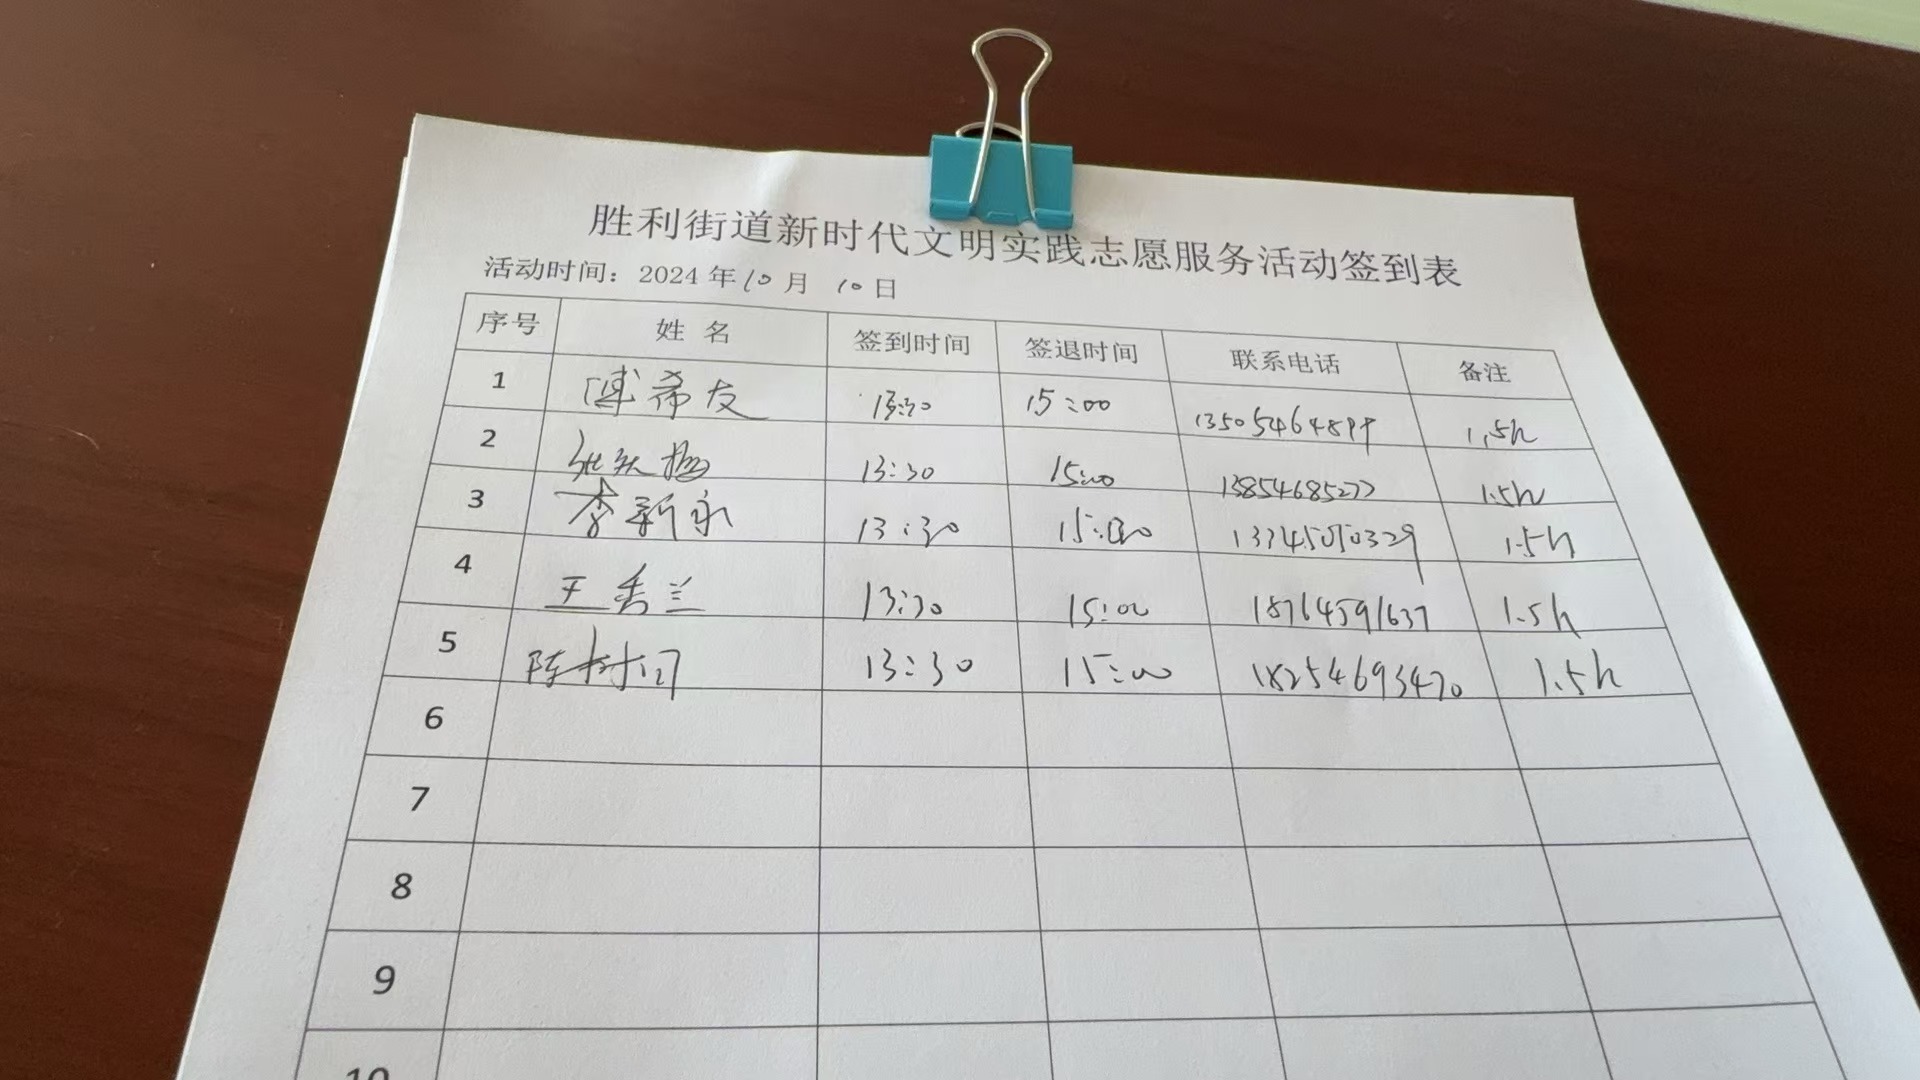 胜利街道新时代文明实践志愿服务活动签到表
活动时间：2024年10月 10日
序号 姓 名 签到时间 签退时间 联系电话 备注
1 傅希友 13:30 15:00 13505464899 1.5h
2 13:30 15:00 13854685277 1.5h
3 李新永 13:30 15:00 1.5h
4 王秀兰 13:30 15:00 18764591637 1.5h
5 13:30 15:00 18254693470 1.5h
6
7
8
9
10